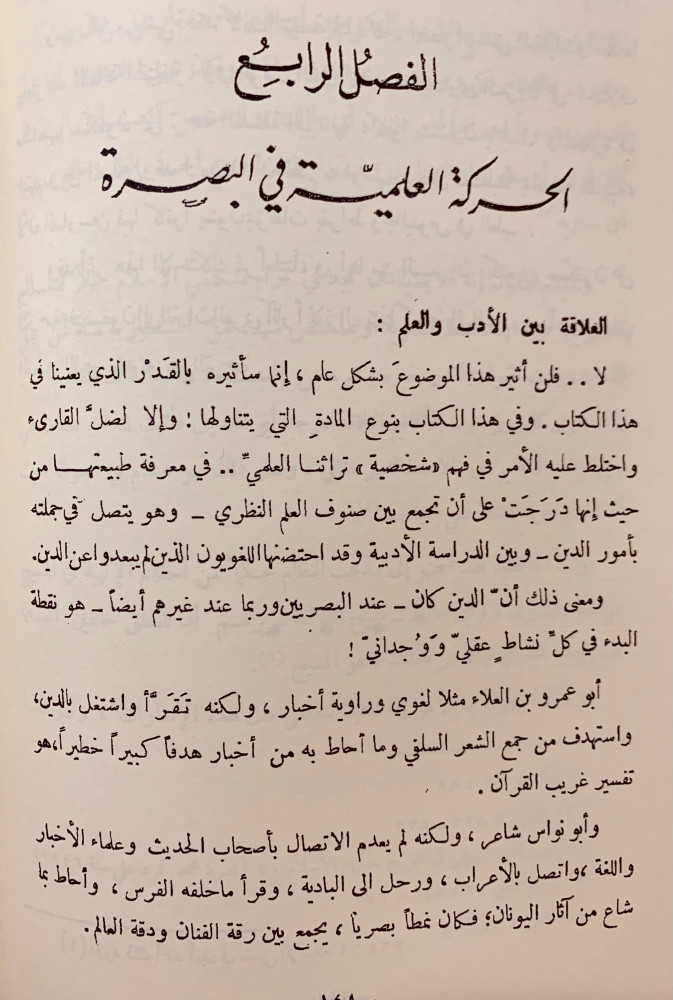 الفصل الرابع
الحركة العلميّة في البصرة
العلاقة بين الأدب والعلم :
لا .. فلن أثير هذا الموضوعَ بشكل عام ، إنما سأثيره بالقَدْر الذي يعنينا في
هذا الكتاب . وفي هذا الكتاب بنوع المادةِ التي يتناولها ؛ وإلا لضلَّ القارىء
واختلط عليه الأمر في فهم «شخصية» تراثنا العلميِّ .. في معرفة طبيعتها من
حيث إنها دَرَجَتْ على أن تجمع بين صنوف العلم النظري – وهو يتصل في جملته
بأمور الدين – وبين الدراسة الأدبية وقد احتضنها اللغويون الذين لم يبعدوا عن الدين.
ومعنى ذلك أنّ الدين كان – عند البصريين وربما عند غيرهم أيضاً – هو نقطة
البدء في كلِّ نشاطٍ عقليّ وَوُجدانيّ !
أبو عمرو بن العلاء مثلا لغوي وراوية أخبار ، ولكنه تَقَرَّأ واشتغل بالدين،
واستهدف من جمع الشعر السلفي وما أحاط به من أخبار هدفاً كبيراً خطيراً،هو
تفسير غريب القرآن .
وأبو نواس شاعر ، ولكنه لم يعدم الاتصال بأصحاب الحديث وعلماء الأخبار
واللغة ،واتصل بالأعراب ، ورحل الى البادية ، وقرأ ماخلفه الفرس ، وأحاط بما
شاع من آثار اليونان؛ فكان نمطاً بصرياً ، يجمع بين رقة الفنان ودقة العالم.